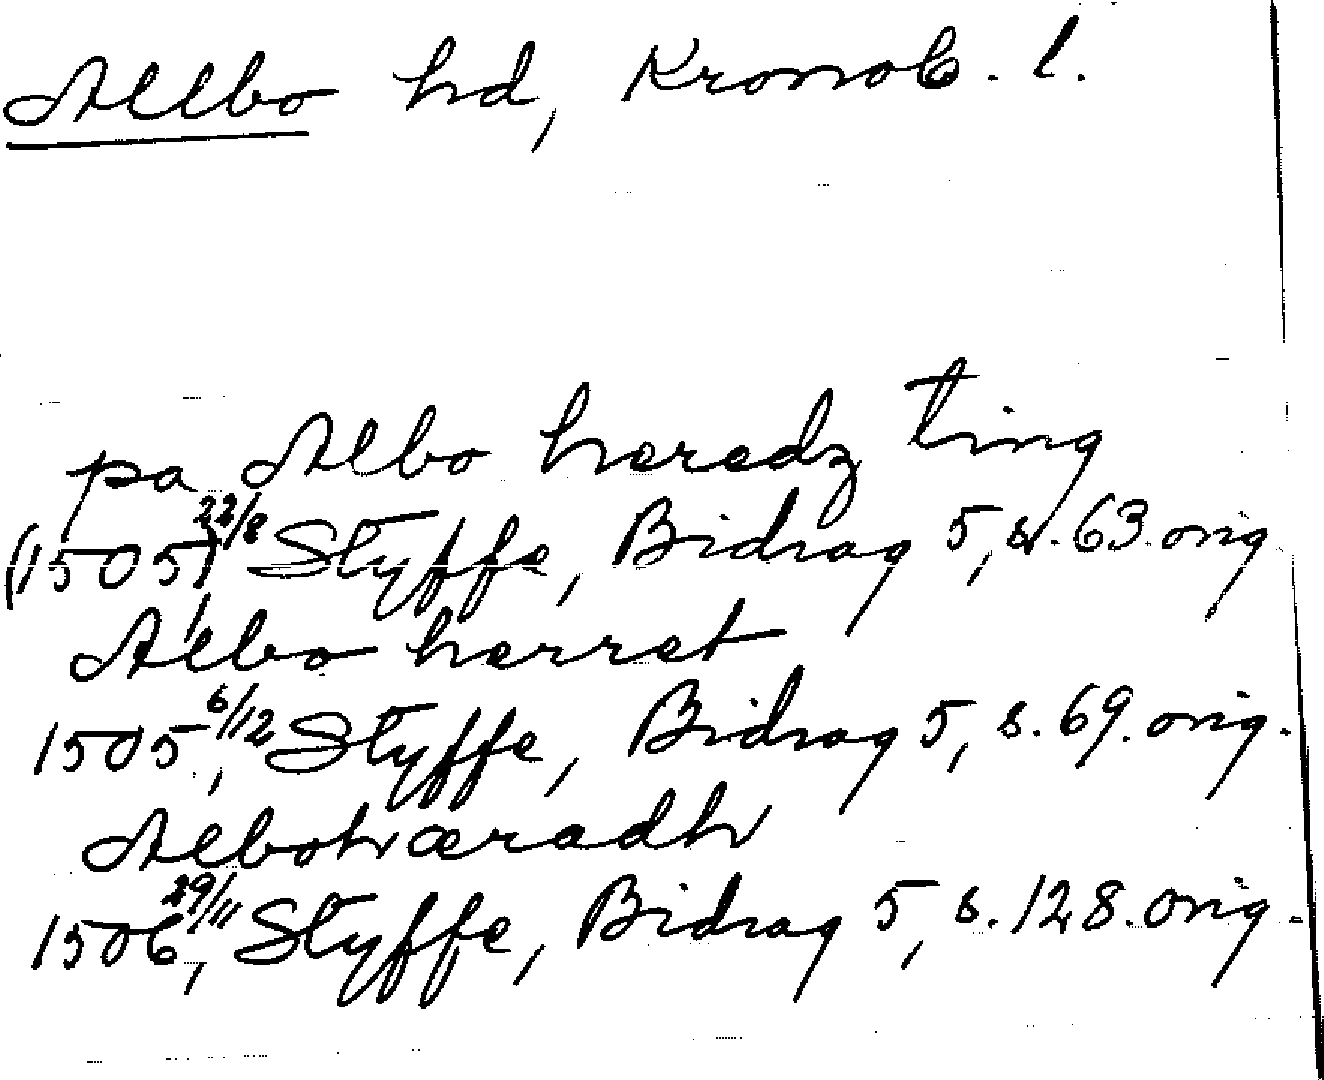 Allbo hd, Kronob. l.
pa Albo heredz ting
(1505) 22/8, Styffe, Bidrag 5, s. 63. orig
Albo herret
1505 6/12, Styffe, Bidrag 5, s. 69. orig.
Albohæradh
1506 29/11, Styffe, Bidrag 5, s. 128. orig.